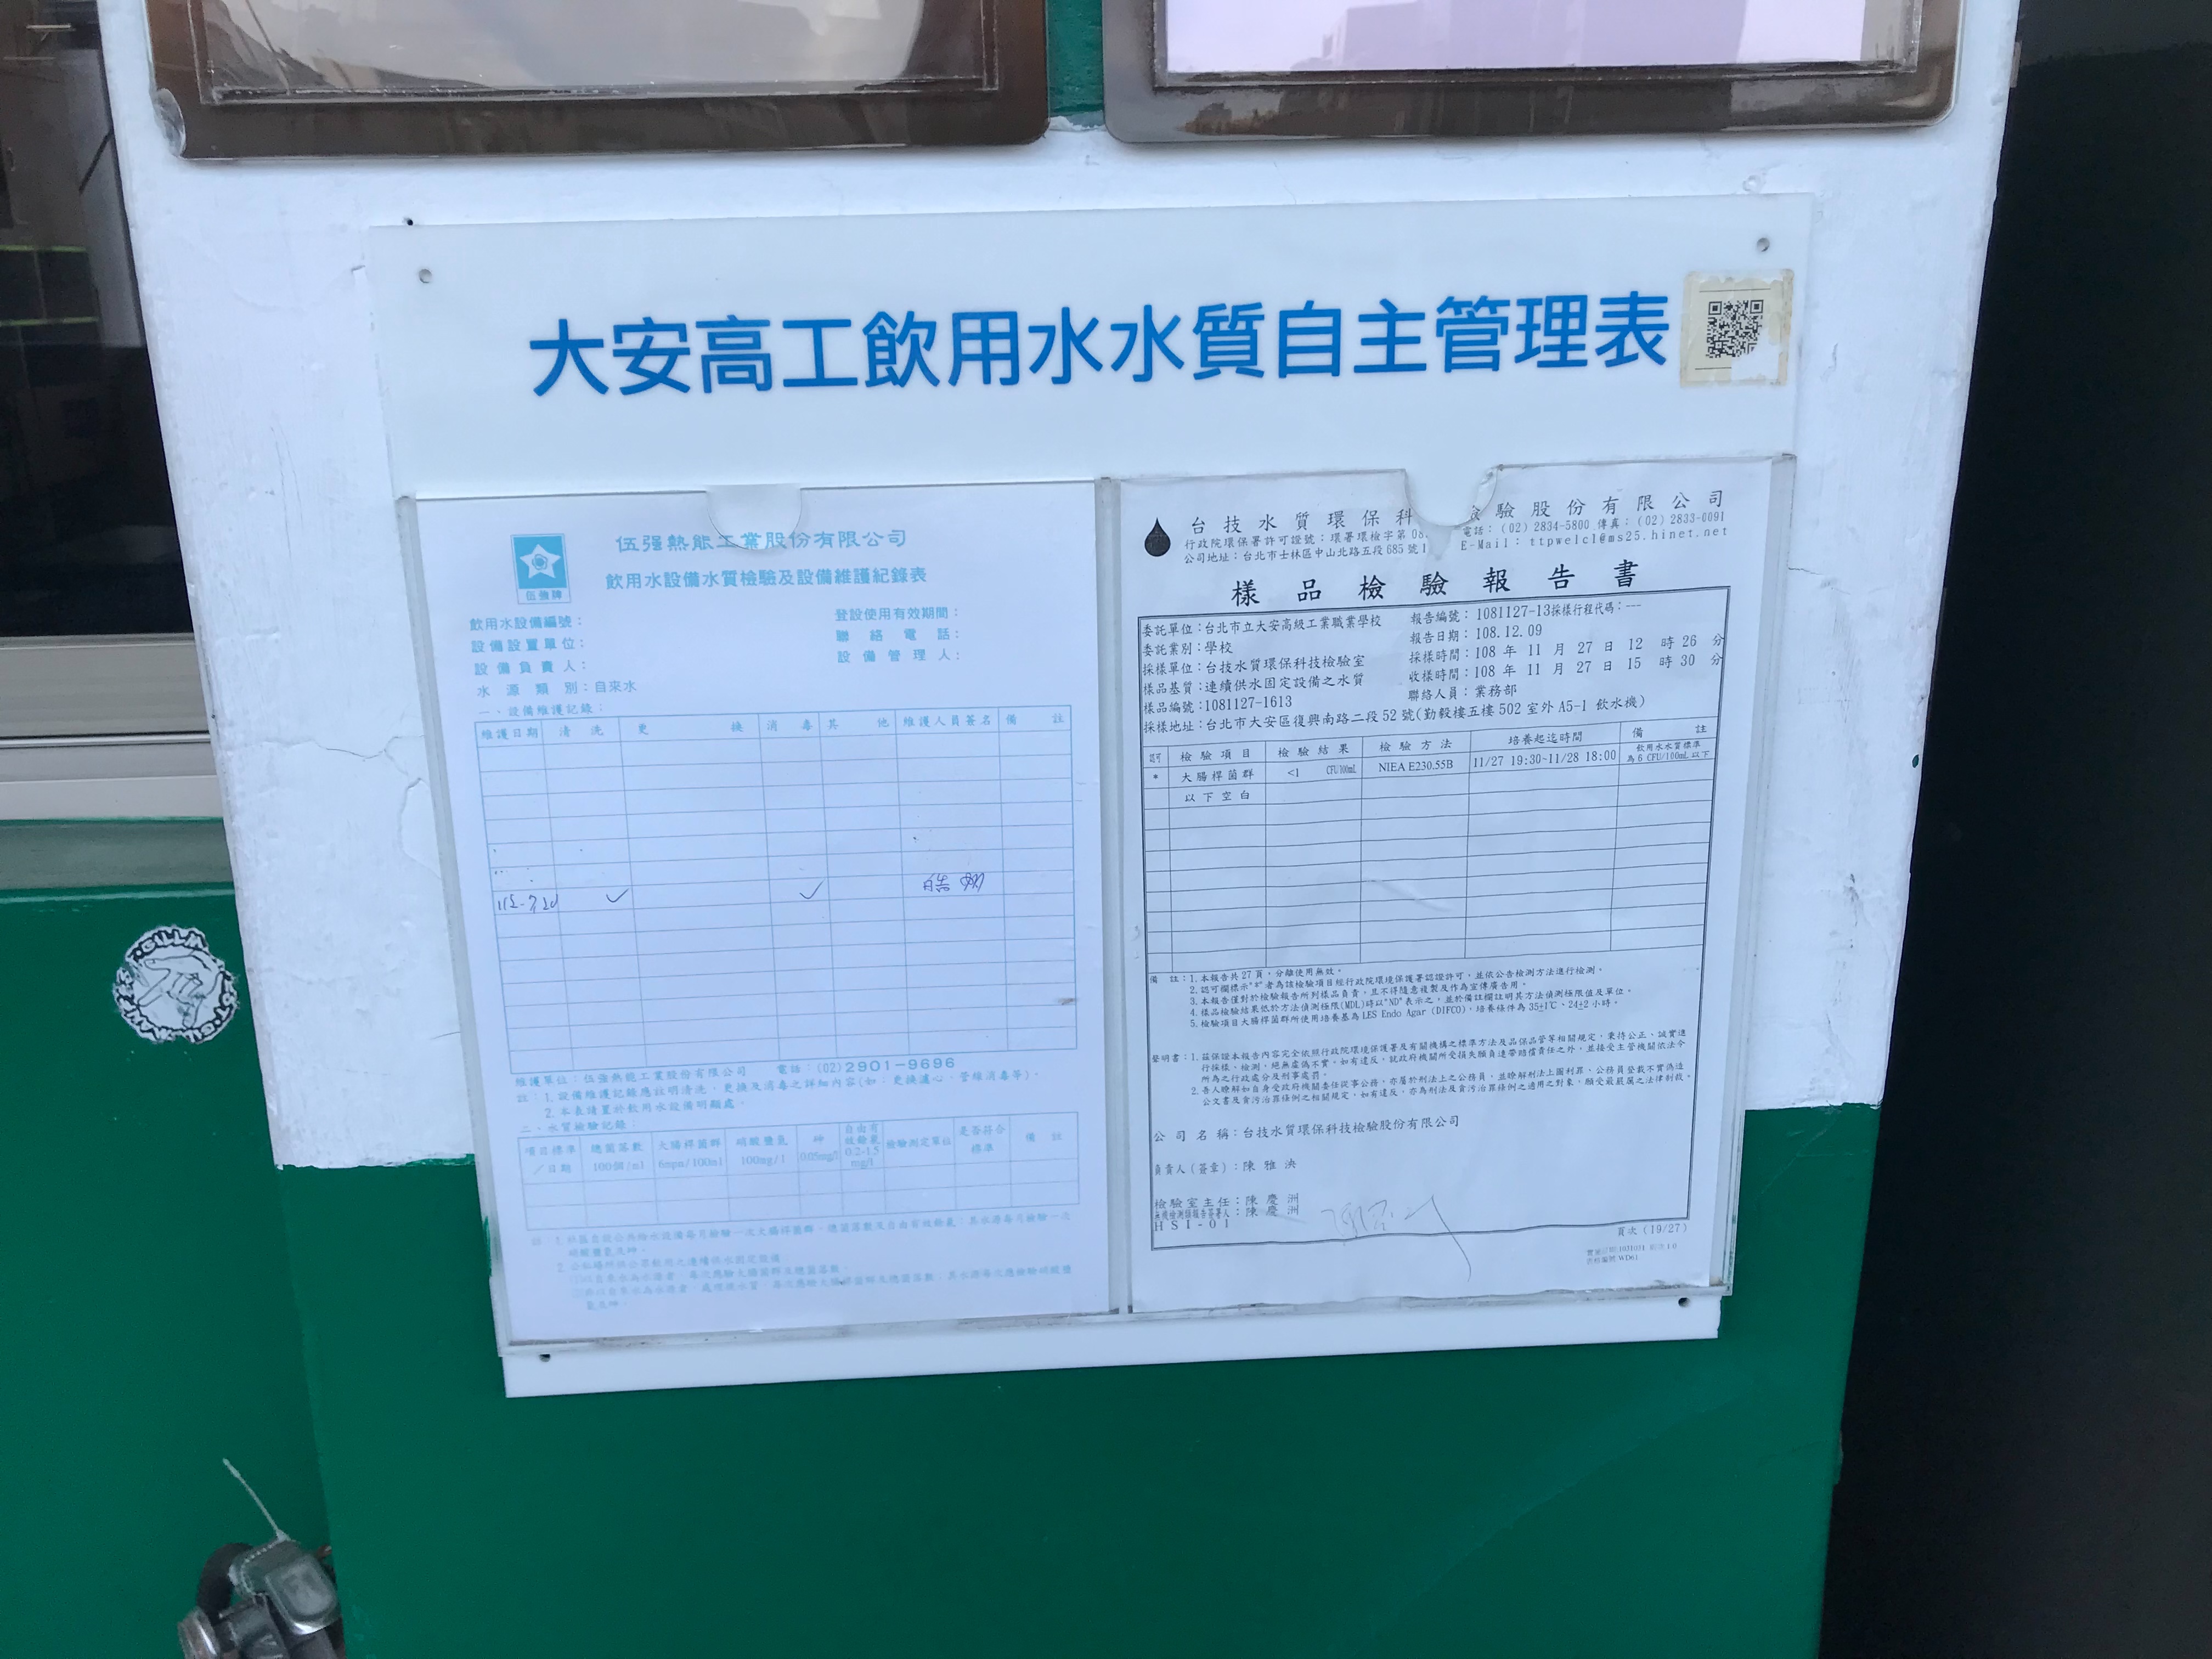 大安高工飲用水水質自主管理表
伍強熱能工業股份有限公司
飲用水設備水質檢驗及設備維護紀錄表
伍強牌
飲用水設備編號：
設備設置單位：
設備負責人：
水源類別：自來水
登設使用有效期間：
聯絡電話：
設備管理人：
一、設備維護記錄：
維護日期 清洗 更換 消毒 其他 維護人員簽名 備註
維護單位：伍強熱能工業股份有限公司 電話：(02)2901-9696
註：1.設備維護記錄應註明清洗、更換及消毒之詳細內容(如：更換濾心、管線消毒等)。
2.本表請置於飲用水設備明顯處。
二、水質檢驗記錄：
項目標準／日期 總菌落數 100個/ml 大腸桿菌群 6mpn/100ml 硝酸鹽氮 100mg/l 砷 0.05mg/l 自由有效餘氯 0.2-1.5 mg/l 檢驗測定單位 是否符合標準 備註
台技水質環保科 檢驗股份有限公司
行政院環保署許可證號：環署環檢字第 電話：(02) 2834-5800 傳真：(02) 2833-0091
公司地址：台北市士林區中山北路五段685號 E-Mail：ttpwelcl@ms25.hinet.net
樣品檢驗報告書
委託單位：台北市立大安高級工業職業學校
委託業別：學校
採樣單位：台技水質環保科技檢驗室
樣品基質：連續供水固定設備之水質
樣品編號：1081127-1613
採樣地址：台北市大安區復興南路二段52號(勤毅樓五樓502室外A5-1飲水機)
報告編號：1081127-13採樣行程代碼：---
報告日期：108.12.09
採樣時間：108 年 11 月 27 日 12 時 26 分
收樣時間：108 年 11 月 27 日 15 時 30 分
聯絡人員：業務部
認可 檢驗項目 檢驗結果 檢驗方法 培養起迄時間 備註
* 大腸桿菌群 <1 CFU/100mL NIEA E230.55B 11/27 19:30~11/28 18:00 飲用水水質標準為6 CFU/100mL以下
以下空白
備註：1.本報告共27頁，分離使用無效。
2.認可欄標示"*"者為該檢驗項目經行政院環境保護署認證許可，並依公告檢測方法進行檢測。
3.本報告僅對於檢驗報告所列樣品負責，且不得隨意複製及作為宣傳廣告用。
4.樣品檢驗結果低於方法偵測極限(MDL)時以"ND"表示之，並於備註欄註明其方法偵測極限值及單位。
5.檢驗項目大腸桿菌群所使用培養基為LES Endo Agar (DIFCO)，培養條件為35±1℃、24±2小時。
聲明書：1.茲保證本報告內容完全依照行政院環境保護署及有關機構之標準方法及品保品管等相關規定，秉持公正、誠實進
行採樣、檢測，絕無虛偽不實，如有違反，就政府機關所受損失願負連帶賠償責任之外，並接受主管機關依法令
所為之行政處分及刑事處罰。
2.吾人瞭解如自身受政府機關委任從事公務，亦屬於刑法上之公務員，並瞭解刑法上圖利罪、公務員登載不實偽造
公文書及貪污治罪條例之相關規定，如有違反，亦為刑法及貪污治罪條例之適用之對象，願受最嚴厲之法律制裁。
公司名稱：台技水質環保科技檢驗股份有限公司
負責人(簽章)：陳雅泱
檢驗室主任：陳慶洲
無機檢測類報告簽署人：陳慶洲
HSI-01
頁次 (19/27)